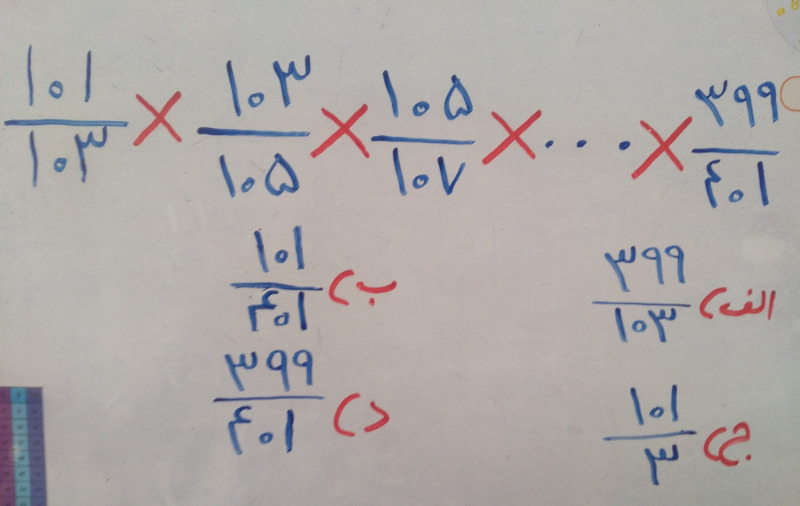 ۱۰۱/۱۰۳ × ۱۰۳/۱۰۵ × ۱۰۵/۱۰۷ × .... × ۳۹۹/۴۰۱
الف) ۳۹۹/۱۰۳
ب) ۱۰۱/۴۰۱
ج) ۱۰۱/۳
د) ۳۹۹/۴۰۱